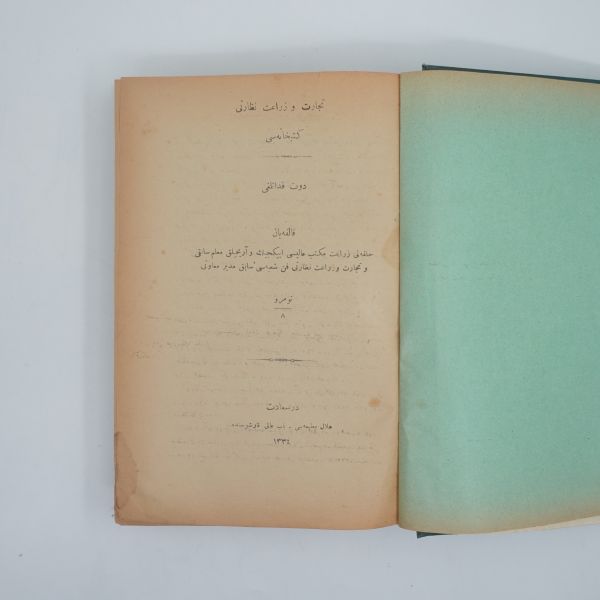 تجارت و زراعت نظارتی
کتبخانه‌سی
دوت فدانلغی
خلقه‌لی زراعت مکتب عالیسی ایپکجیلك و آریجیلق معلم سابقی
و تجارت و زراعت نظارتی فن شعبه‌سی سابق مدیر معاونی
نومرو
٨
درسعادت
هلال مطبعه‌سی ـ باب عالی قارشوسنده
١٣٣٤